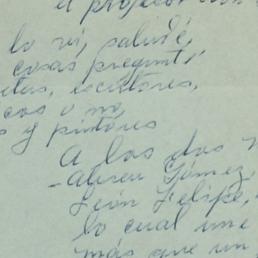 el proyector
lo vi, saludé,
cosas pregunté
etas, escritores,
icos o no,
s y pintores
A los dos
-Aliseu Gómez,
León Felipe,
lo cual me
más que un